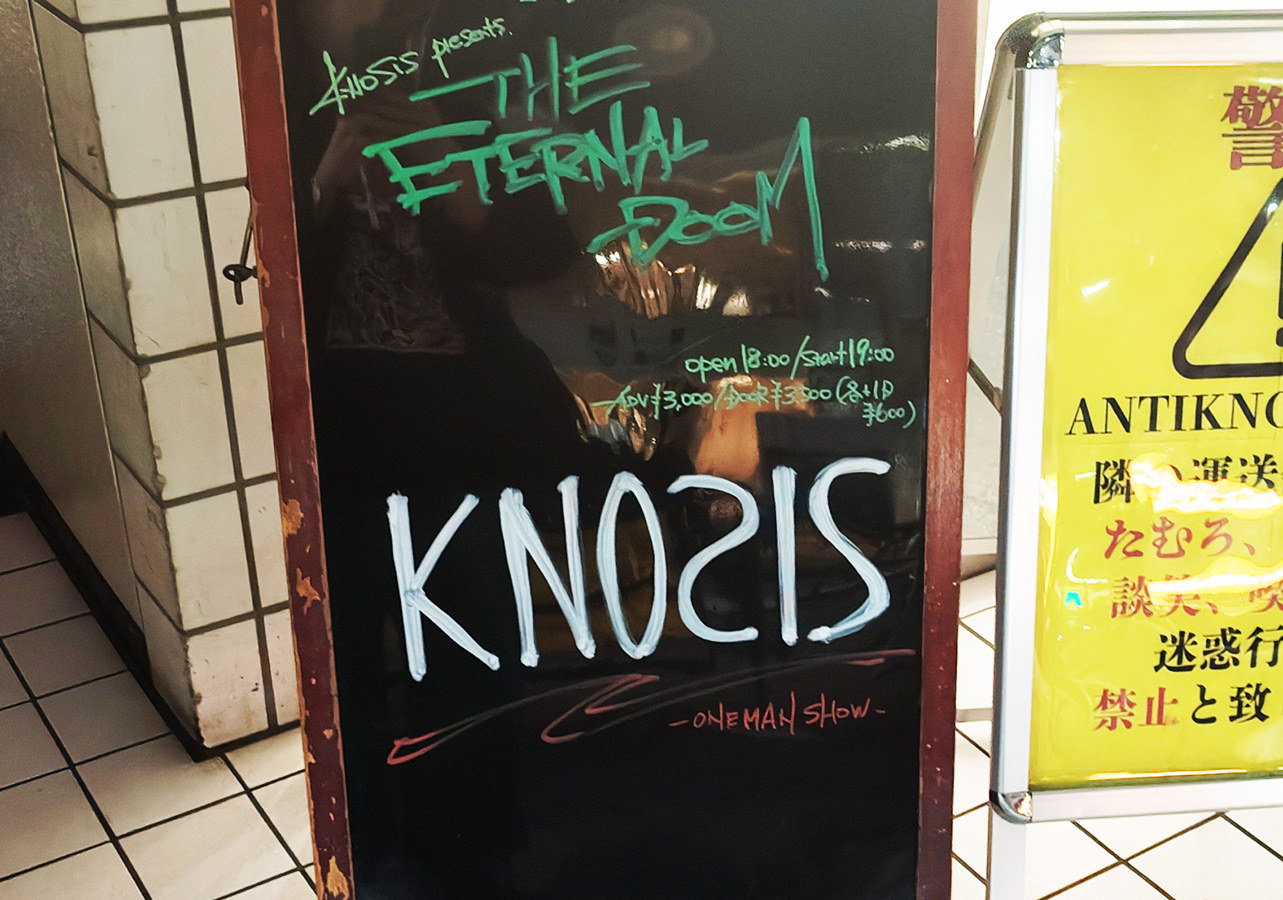 KNOSIS presents.
THE
ETERNAL
DOOM
open 18:00/start 19:00
ADV ¥3,000/DOOR ¥3,500 (各+1D
¥600)
KNOSIS
-ONEMAN SHOW-
警
ANTIKNO
隣の運送
たむろ、
談笑、吹
迷惑行
禁止と致